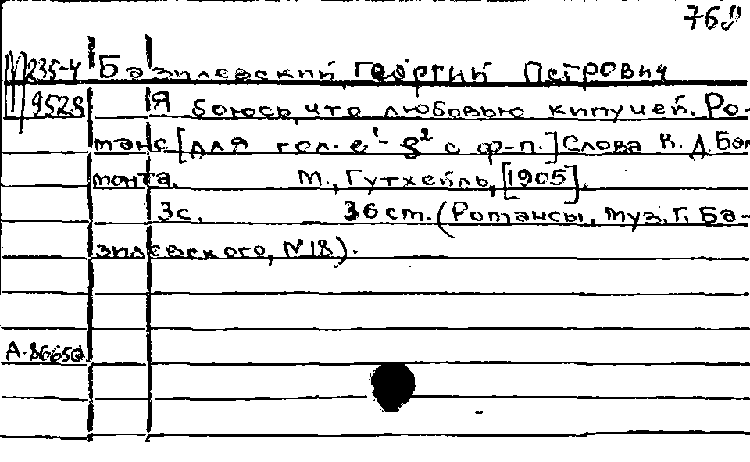 769
М 235-4 Базилевский, Георгий Петрович
9528 Я боюсь, что любовью кипучей. Ро-
манс [для гол. e¹- g² с ф-п.] Слова К. Д. Баль
монта. М., Гутхейль, [1905].
3с. 36 cm. (Романсы, муз. Г. Ба-
зилевского, №18).
А-86650